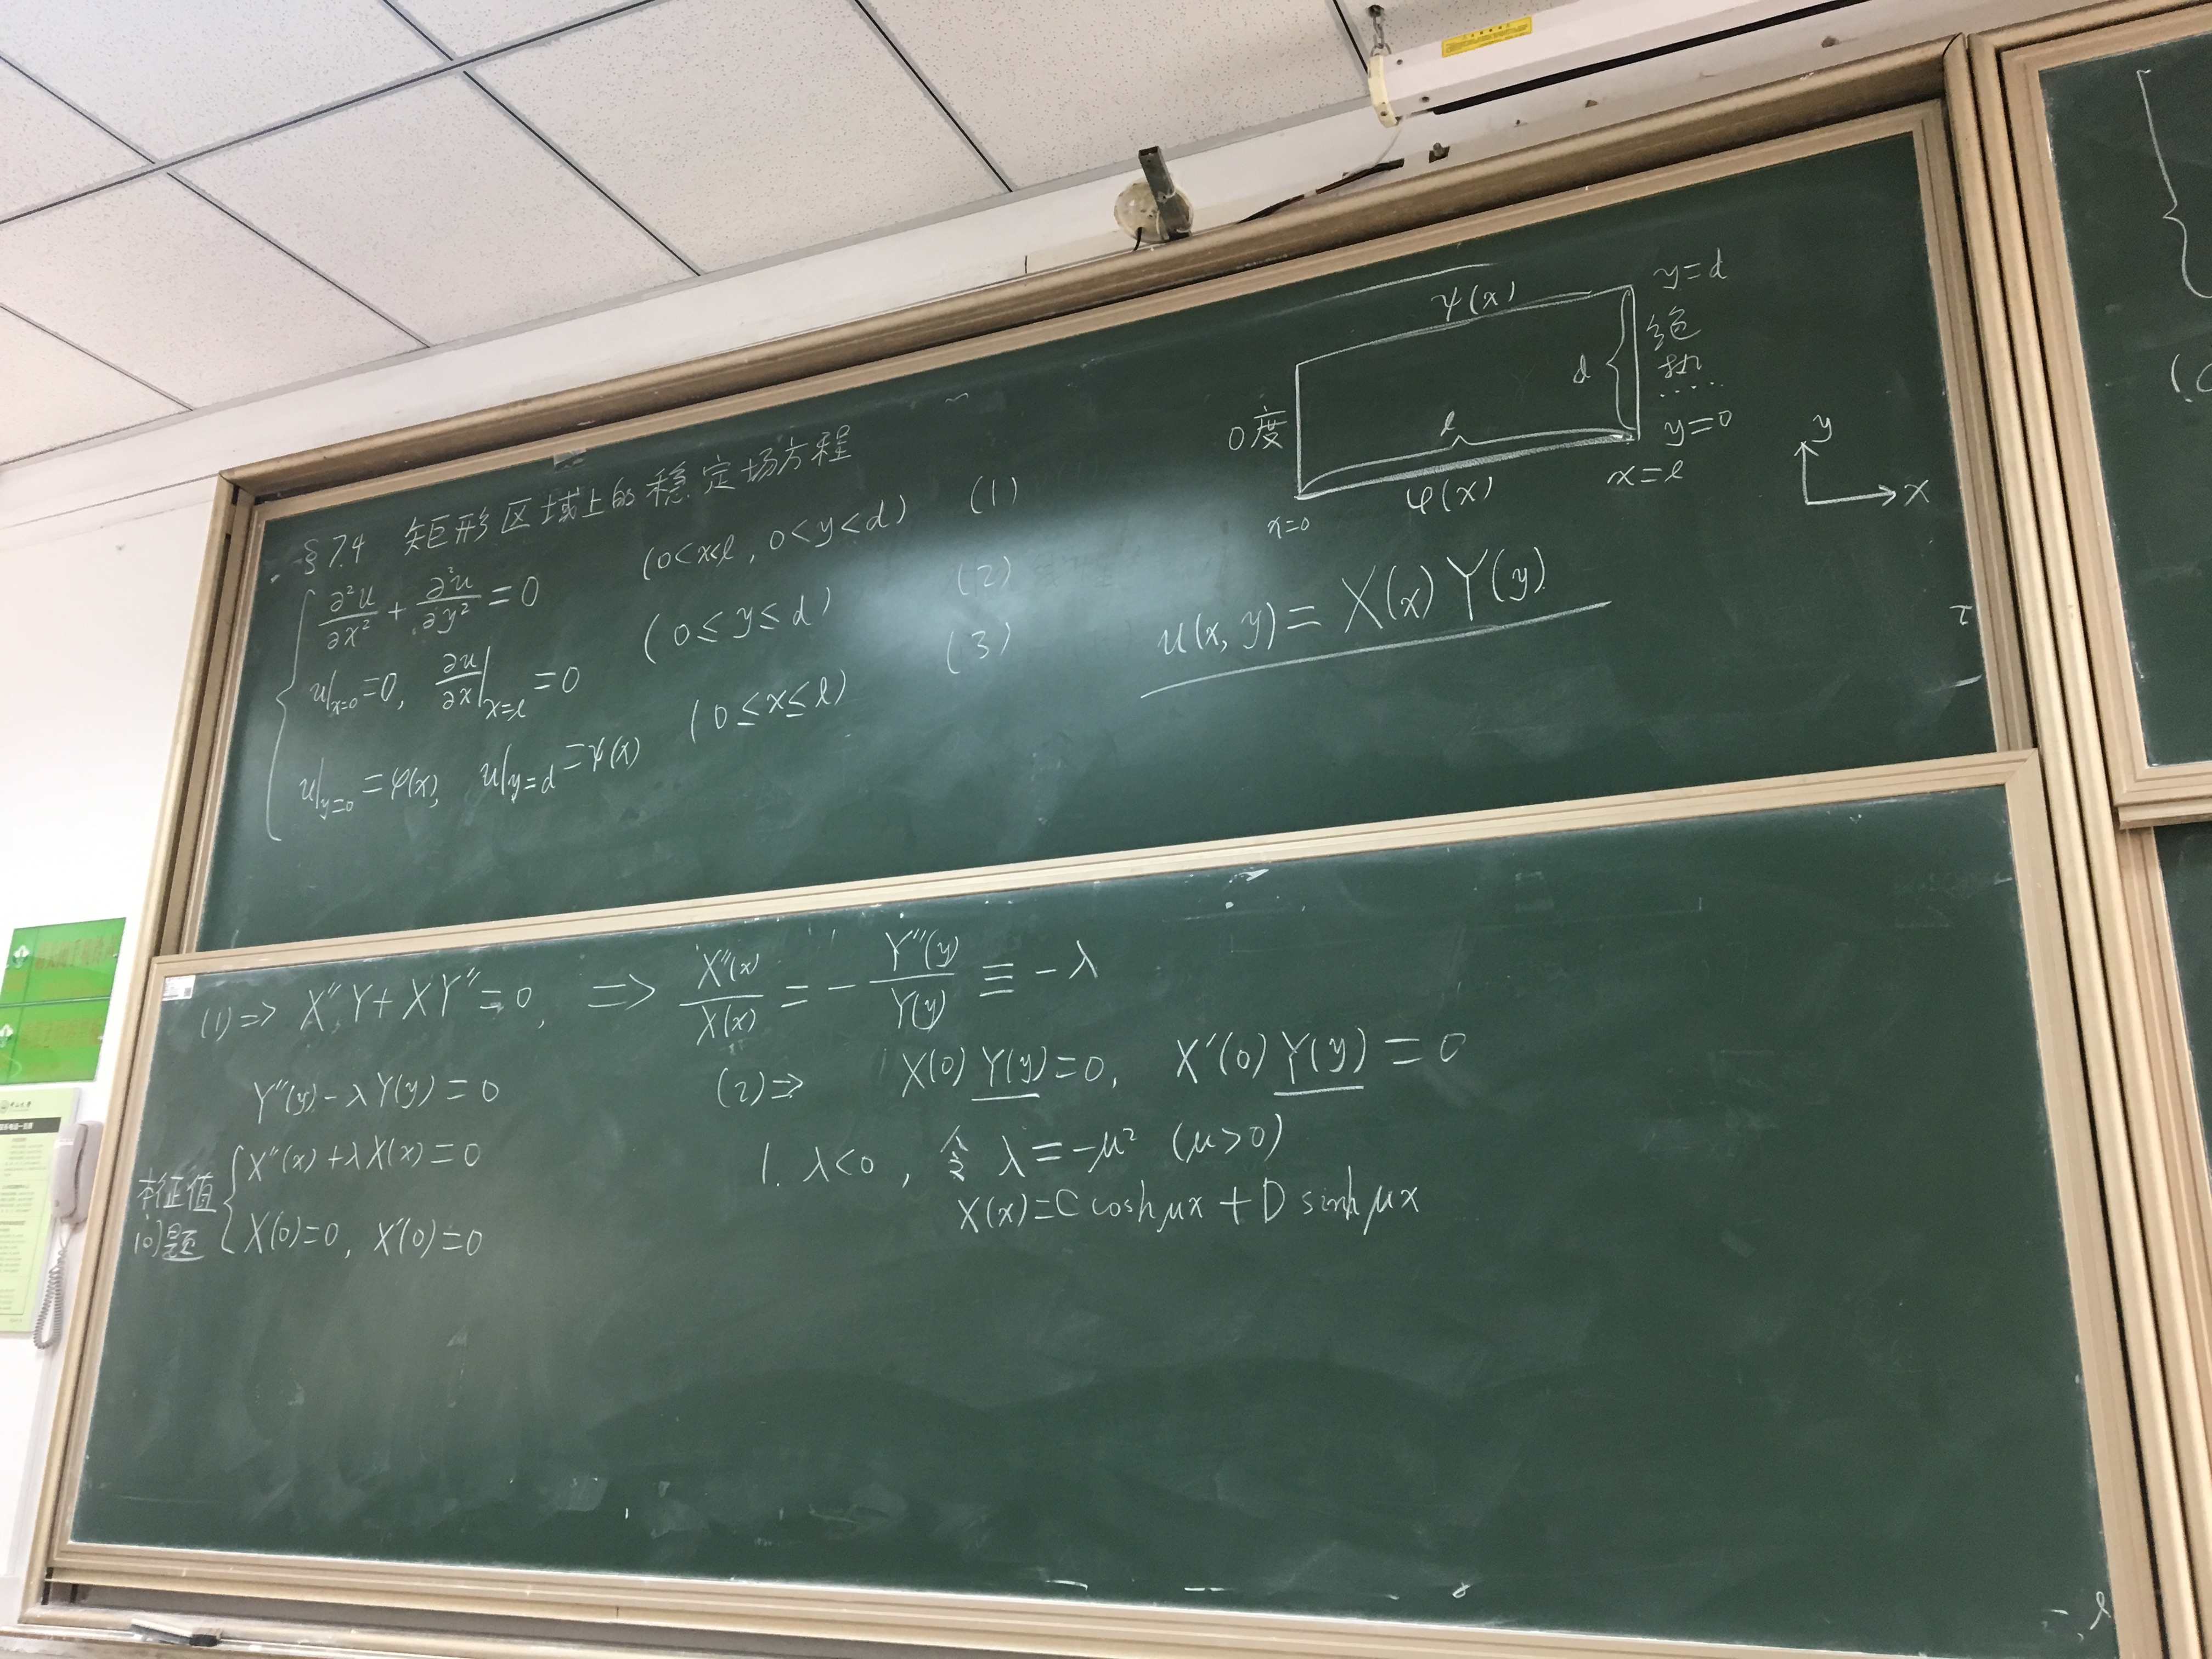 §7.4 矩形区域上的稳定场方程
∂²u/∂x² + ∂²u/∂y² = 0 (0<x<l, 0<y<d) (1)
u|x=0 =0, ∂u/∂x|x=l =0 (0≤y≤d) (2)
u|y=0 =φ(x), u|y=d =ψ(x) (0≤x≤l) (3)
ψ(x)
y=d
绝
热
d
0度
l
y=0
x=l
φ(x)
x=0
y
x
u(x, y) = X(x) Y(y)
(1) ⇒ X''Y + XY'' = 0, ⇒ X''(x)/X(x) = - Y''(y)/Y(y) ≡ -λ
Y''(y) - λY(y) = 0
本征值
问题
X''(x) + λX(x) = 0
X(0)=0, X'(0)=0
(2) ⇒ X(0) Y(y) = 0, X'(0) Y(y) = 0
1. λ<0, 令 λ = -μ² (μ>0)
X(x) = C cosh μx + D sinh μx